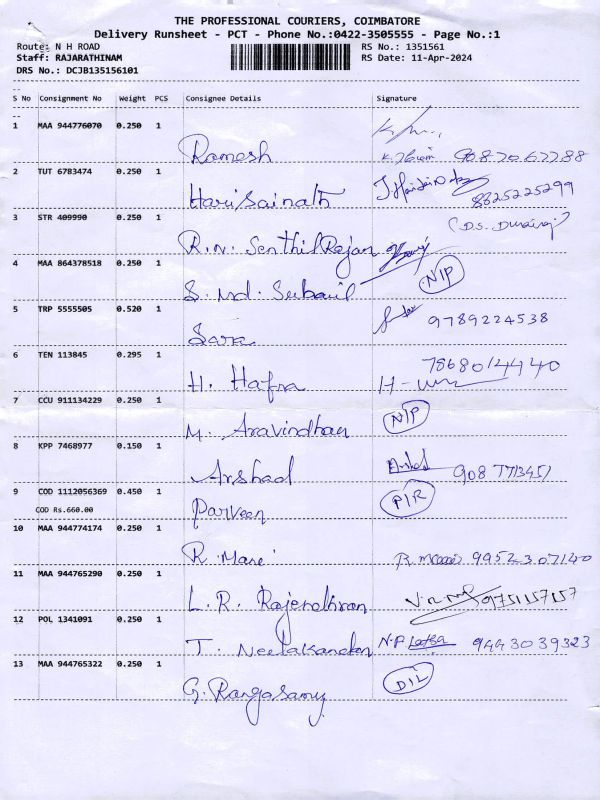 THE PROFESSIONAL COURIERS, COIMBATORE
Delivery Runsheet - PCT - Phone No.:0422-3505555 - Page No.:1
Route: N H ROAD RS No.: 1351561
Staff: RAJARATHINAM RS Date: 11-Apr-2024
DRS No.: DCJB135156101
S No Consignment No Weight PCS Consignee Details Signature
1 MAA 944776070 0.250 1
Ramesh
2 TUT 6783474 0.250 1
Harisainath 8825225299
3 STR 409990 0.250 1 (D.S.
R.N. SenthilRajan
4 MAA 864378518 0.250 1 N/P
S. Md.
5 TRP 5555505 0.520 1 9789224538
Sara
6 TEN 113845 0.295 1 7868014440
H. Hafsa H-
7 CCU 911134229 0.250 1 N/P
M. Aravindhan
8 KPP 7468977 0.150 1
Arshad
9 COD 1112056369 0.450 1 P/R
COD Rs.660.00 Parveen
10 MAA 944774174 0.250 1
R. Mani R. 9952307140
11 MAA 944765290 0.250 1
L.R. Rajendhran 9751157157
12 POL 1341091 0.250 1 N.P 9443039323
T. Neelakandan
13 MAA 944765322 0.250 1 D/L
G. Rangasamy